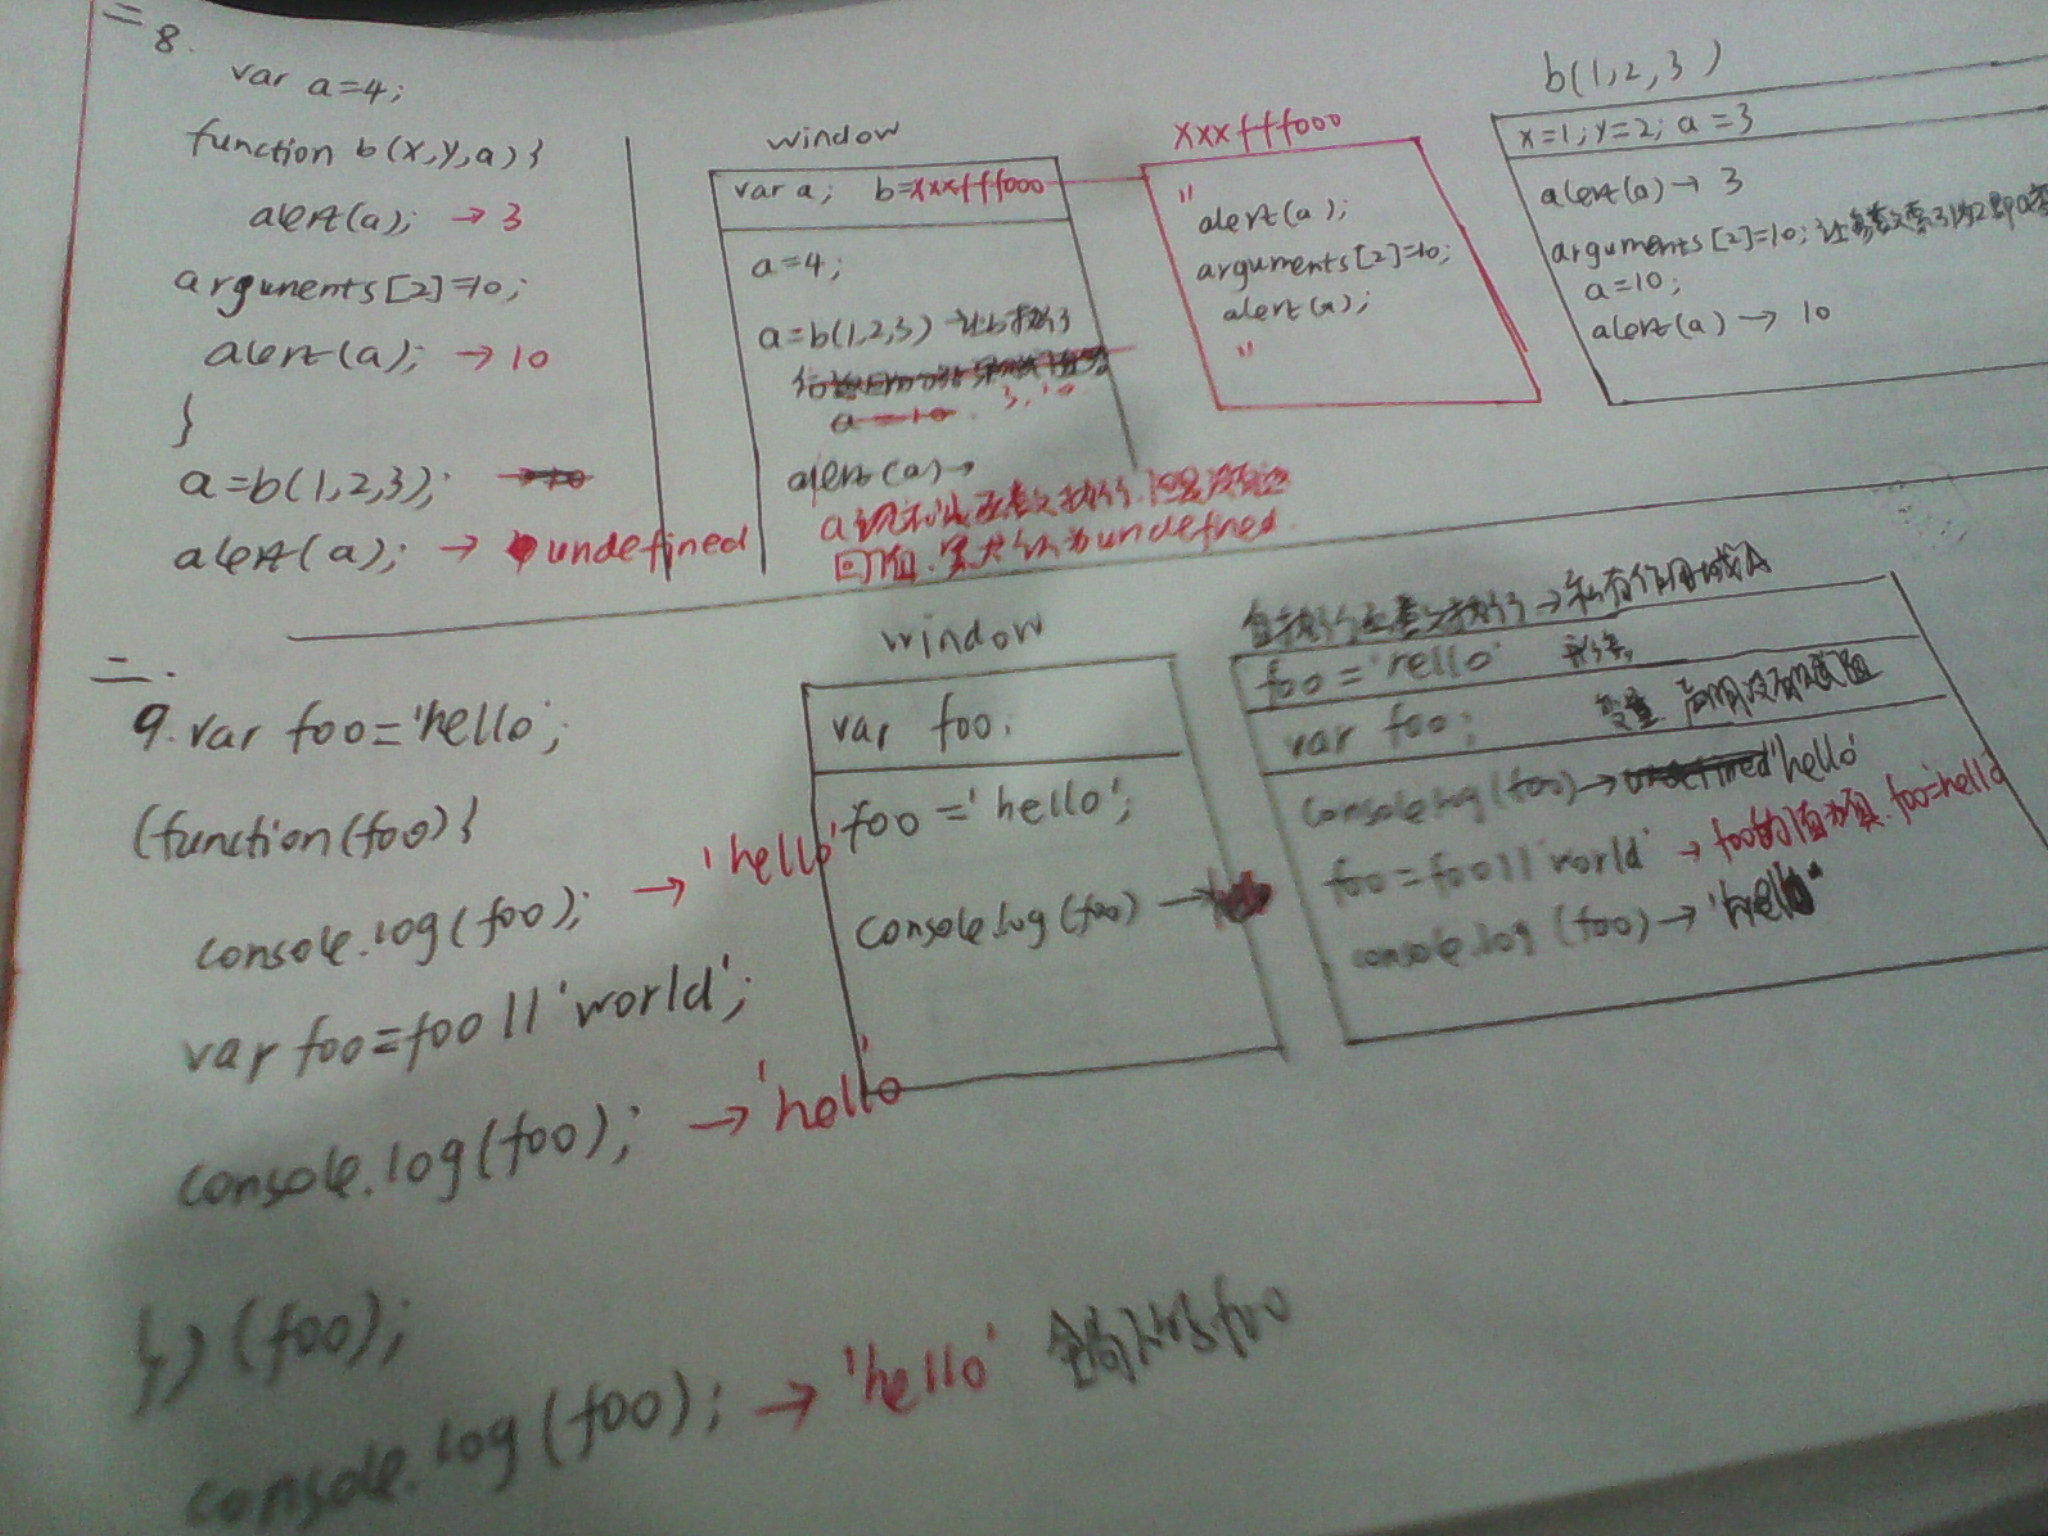 二 8.
var a=4;
function b(x,y,a){
alert(a); → 3
arguments[2]=10;
alert(a); → 10
}
a=b(1,2,3);
alert(a); → undefined
window
var a; b=xxxfff000
a=4;
a=b(1,2,3) →让b执行
3,10
alert(a)→
a调用此函数执行.但是没有返
回值.默认为undefined
xxxfff000
"
alert(a);
arguments[2]=10;
alert(a);
"
b(1,2,3)
x=1;y=2;a=3
alert(a)→ 3
arguments[2]=10;
a=10;
alert(a) → 10
二.
9. var foo='hello';
(function(foo){
console.log(foo); → 'hello'
var foo=foo||'world';
console.log(foo); → 'hello'
})(foo);
console.log(foo); → 'hello' 全局下的foo
window
var foo;
foo='hello';
console.log(foo) →
自执行函数执行→私有作用域A
foo='hello' 形参
var foo; 变量.声明没有赋值
console.log(foo)→ 'hello'
foo=foo||'world' → foo的值为真.foo=hello
console.log(foo)→ 'hello'